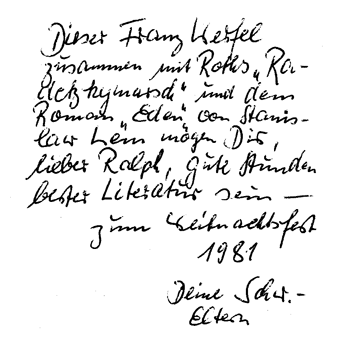 Dieser Franz Werfel
zusammen mit Roths „Ra-
detzkymarsch" und dem
Roman „Eden" von Stanis-
law Lem mögen Dir,
lieber Ralph, gute Stunden
bester Literatur sein —
zum Weihnachtsfest
1981
Deine Schw.-
Eltern